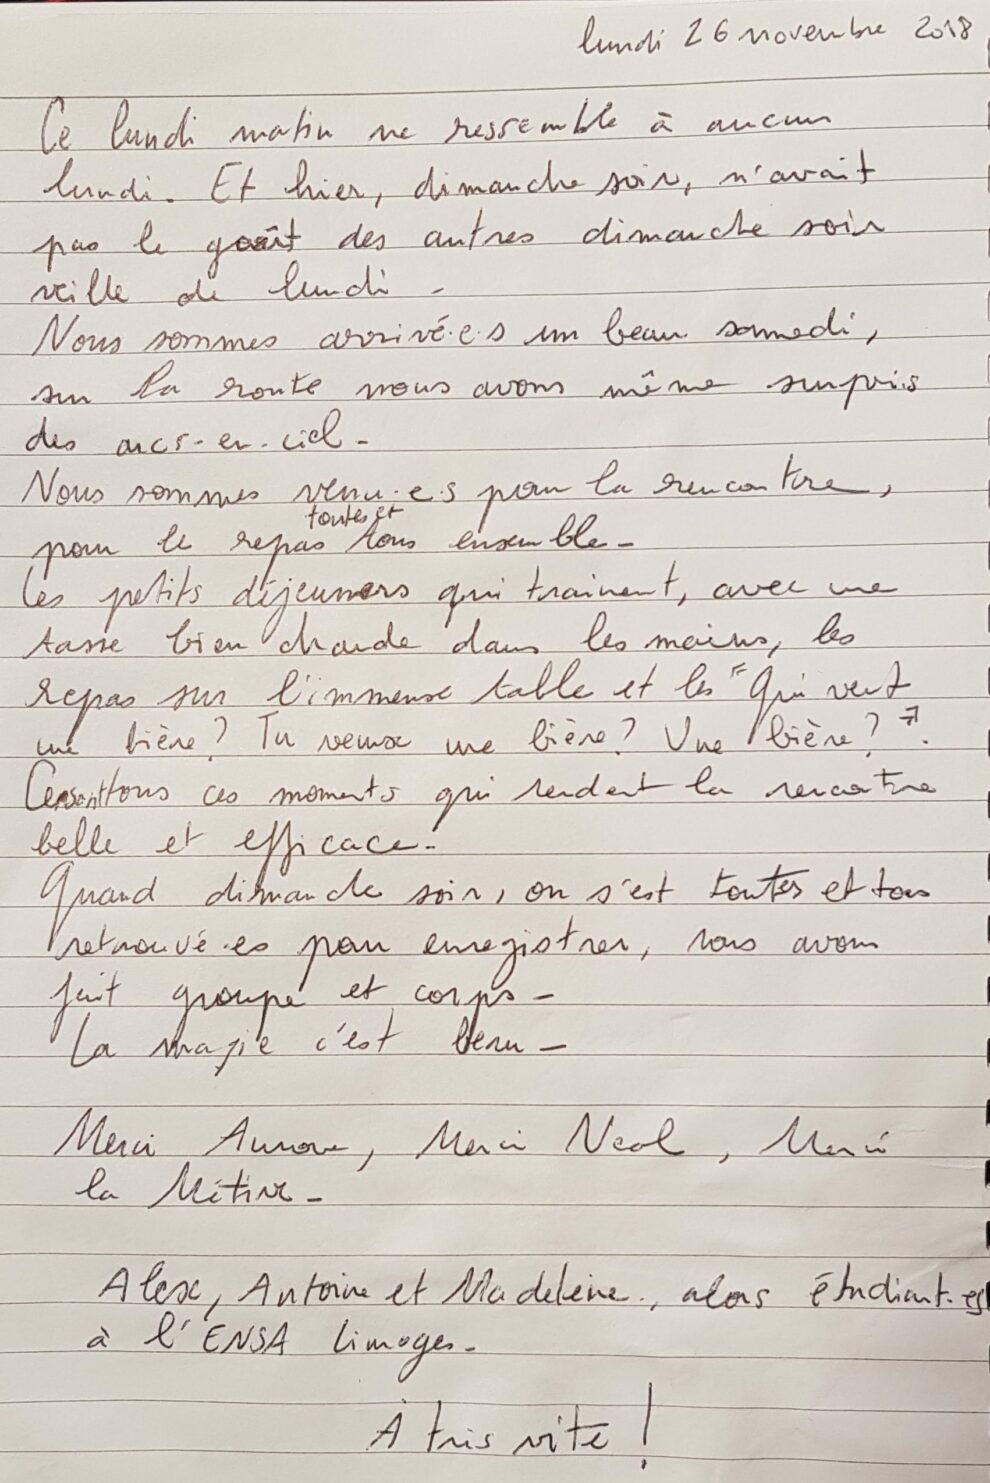 lundi 26 novembre 2018
Ce lundi matin ne ressemble à aucun
lundi. Et hier, dimanche soir, n'avait
pas le goût des autres dimanche soir
veille de lundi -
Nous sommes arrivé·e·s un beau samedi,
sur la route nous avons même surpris
des arcs-en-ciel -
Nous sommes venu·e·s pour la rencontre,
toutes et
pour le repas tous ensemble -
Les petits déjeuners qui trainent, avec une
tasse bien chaude dans les mains, les
repas sur l'immense table et les "Qui veut
une bière? Tu veux une bière? Une bière?".
Ce sont tous ces moments qui rendent la rencontre
belle et efficace -
Quand dimanche soir, on s'est toutes et tous
retrouvé·es pour enregistrer, nous avons
fait groupe et corps -
La magie c'est beau -
Merci Aurore, Merci Neal, Merci
la Métive -
Alex, Antoine et Madeleine, alors étudiant·es
à l'ENSA Limoges -
À très vite !